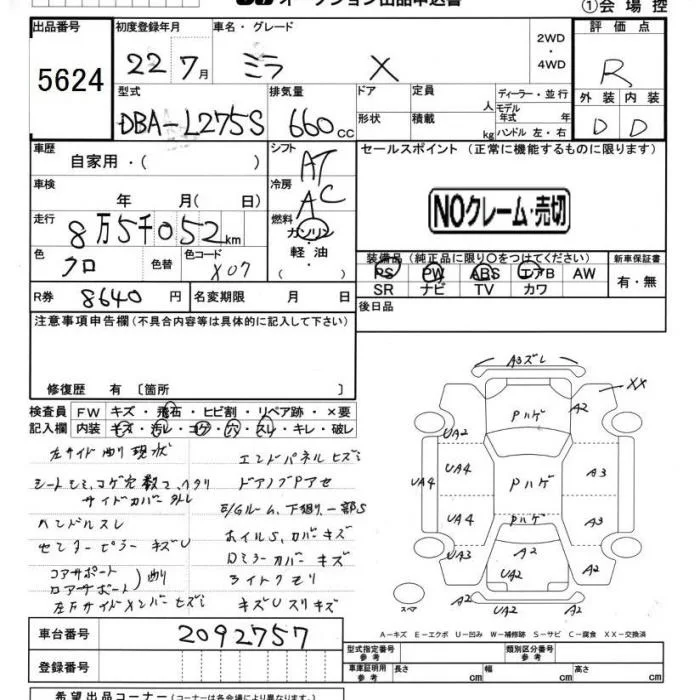 オークション出品申込書
①会場控
出品番号
5624
初度登録年月
22年7月
車名・グレード
ミラ X
2WD
・
4WD
評価点
R
型式
DBA-L275S
排気量
660cc
ドア
定員
人
ディーラー・並行
モデル年式 年
形状
積載
kg
ハンドル 左・右
外装 内装
D D
車歴
自家用・( )
シフト
AT
セールスポイント (正常に機能するものに限ります)
車検
年 月( 日)
冷房
AC
NOクレーム・売切
走行
8万5千052km
燃料
ガソリン
・
軽油
( )
色
クロ
色替
色コード
X07
装備品 (純正品に限り○をつけてください)
PS PW ABS エアB AW
SR ナビ TV カワ
新車保証書
有・無
R券 8640円
名変期限 月 日
後日品
注意事項申告欄(不具合内容等は具体的に記入して下さい)
修復歴 有 〔箇所 〕
検査員記入欄
FW キズ・飛石・ヒビ割・リペア跡・×要
内装 キズ・汚レ・コゲ・穴・スレ・キレ・破レ
左サイド曲り現状
サイドカバー外レ
ハンドルスレ
センターピラーキズU
コアサポート
ロアサポート
)曲り
左Fサイドメンバーヒズミ
エンドパネルヒズミ
E/Gルーム、下廻り一部S
ホイルS、カバーキズ
ロミラーカバーキズ
ライトクモリ
キズUスリキズ
A3ズレ
XX
A2
Pハゲ
UA2
UA4
UA4
A3
Pハゲ
UA4
A3
Pハゲ
UA3
A2
A2
UA2
A2
UA2
A2
スペア
A-キズ E-エクボ U-凹み W-補修跡 S-サビ C-腐食 XX-交換済
車台番号
2092757
型式指定番号
参考
類別区分番号
参考
登録番号
車庫証明用
参考
長さ cm
幅 cm
高さ cm
希望出品コーナー(コーナーは各会場により異なります)